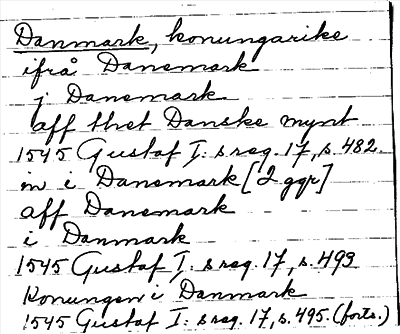 Danmark, konungarike
ifrå Danemark
j Danemark
aff thet Danske mynt
1545 Gustaf I: s reg. 17, s. 482.
in i Danemark [2 ggr]
aff Danemark
i Danmark
1545 Gustaf I: s reg. 17, s. 493
Konungen i Danmark
1545 Gustaf I: s reg. 17, s. 495. (forts.)